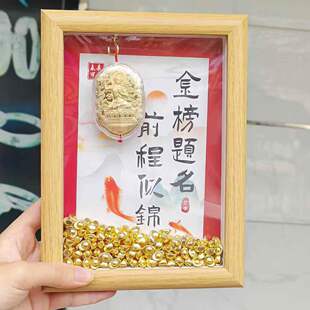 金榜題名
前程似錦